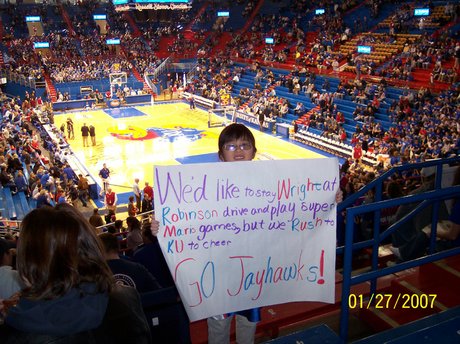 We'd like to stay Wright at
Robinson drive and play Super
Mario games, but we Rush to
KU to cheer
GO JayhawKs!
01/27/2007